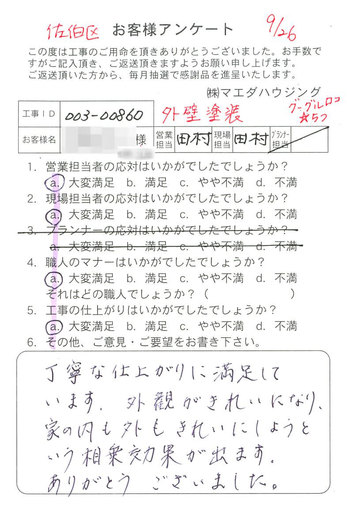 佐伯区 お客様アンケート 9/26
この度は工事のご用命を頂きありがとうございました。お手数で
すがご記入頂き、ご返送頂きますようお願い申し上げます。
ご返送いただいた方から、毎月抽選で感謝品を進呈いたします。
㈱マエダハウジング
工事ID 003-00860 外壁塗装 グーグル口コ
☆5つ
お客様名 様 営業担当 田村 現場担当 田村 プランナー担当
1. 営業担当者の応対はいかがでしたでしょうか?
a. 大変満足 b. 満足 c. やや不満 d. 不満
2. 現場担当者の応対はいかがでしたでしょうか?
a. 大変満足 b. 満足 c. やや不満 d. 不満
3. プランナーの応対はいかがでしたでしょうか?
a. 大変満足 b. 満足 c. やや不満 d. 不満
4. 職人のマナーはいかがでしたでしょうか?
a. 大変満足 b. 満足 c. やや不満 d. 不満
それはどの職人でしょうか?( )
5. 工事の仕上がりはいかがでしたでしょうか?
a. 大変満足 b. 満足 c. やや不満 d. 不満
6. その他、ご意見・ご要望をお書き下さい。
丁寧な仕上がりに満足して
います。外観がきれいになり、
家の内も外もきれいにしようと
いう相乗効果が出ます。
ありがとうございました。